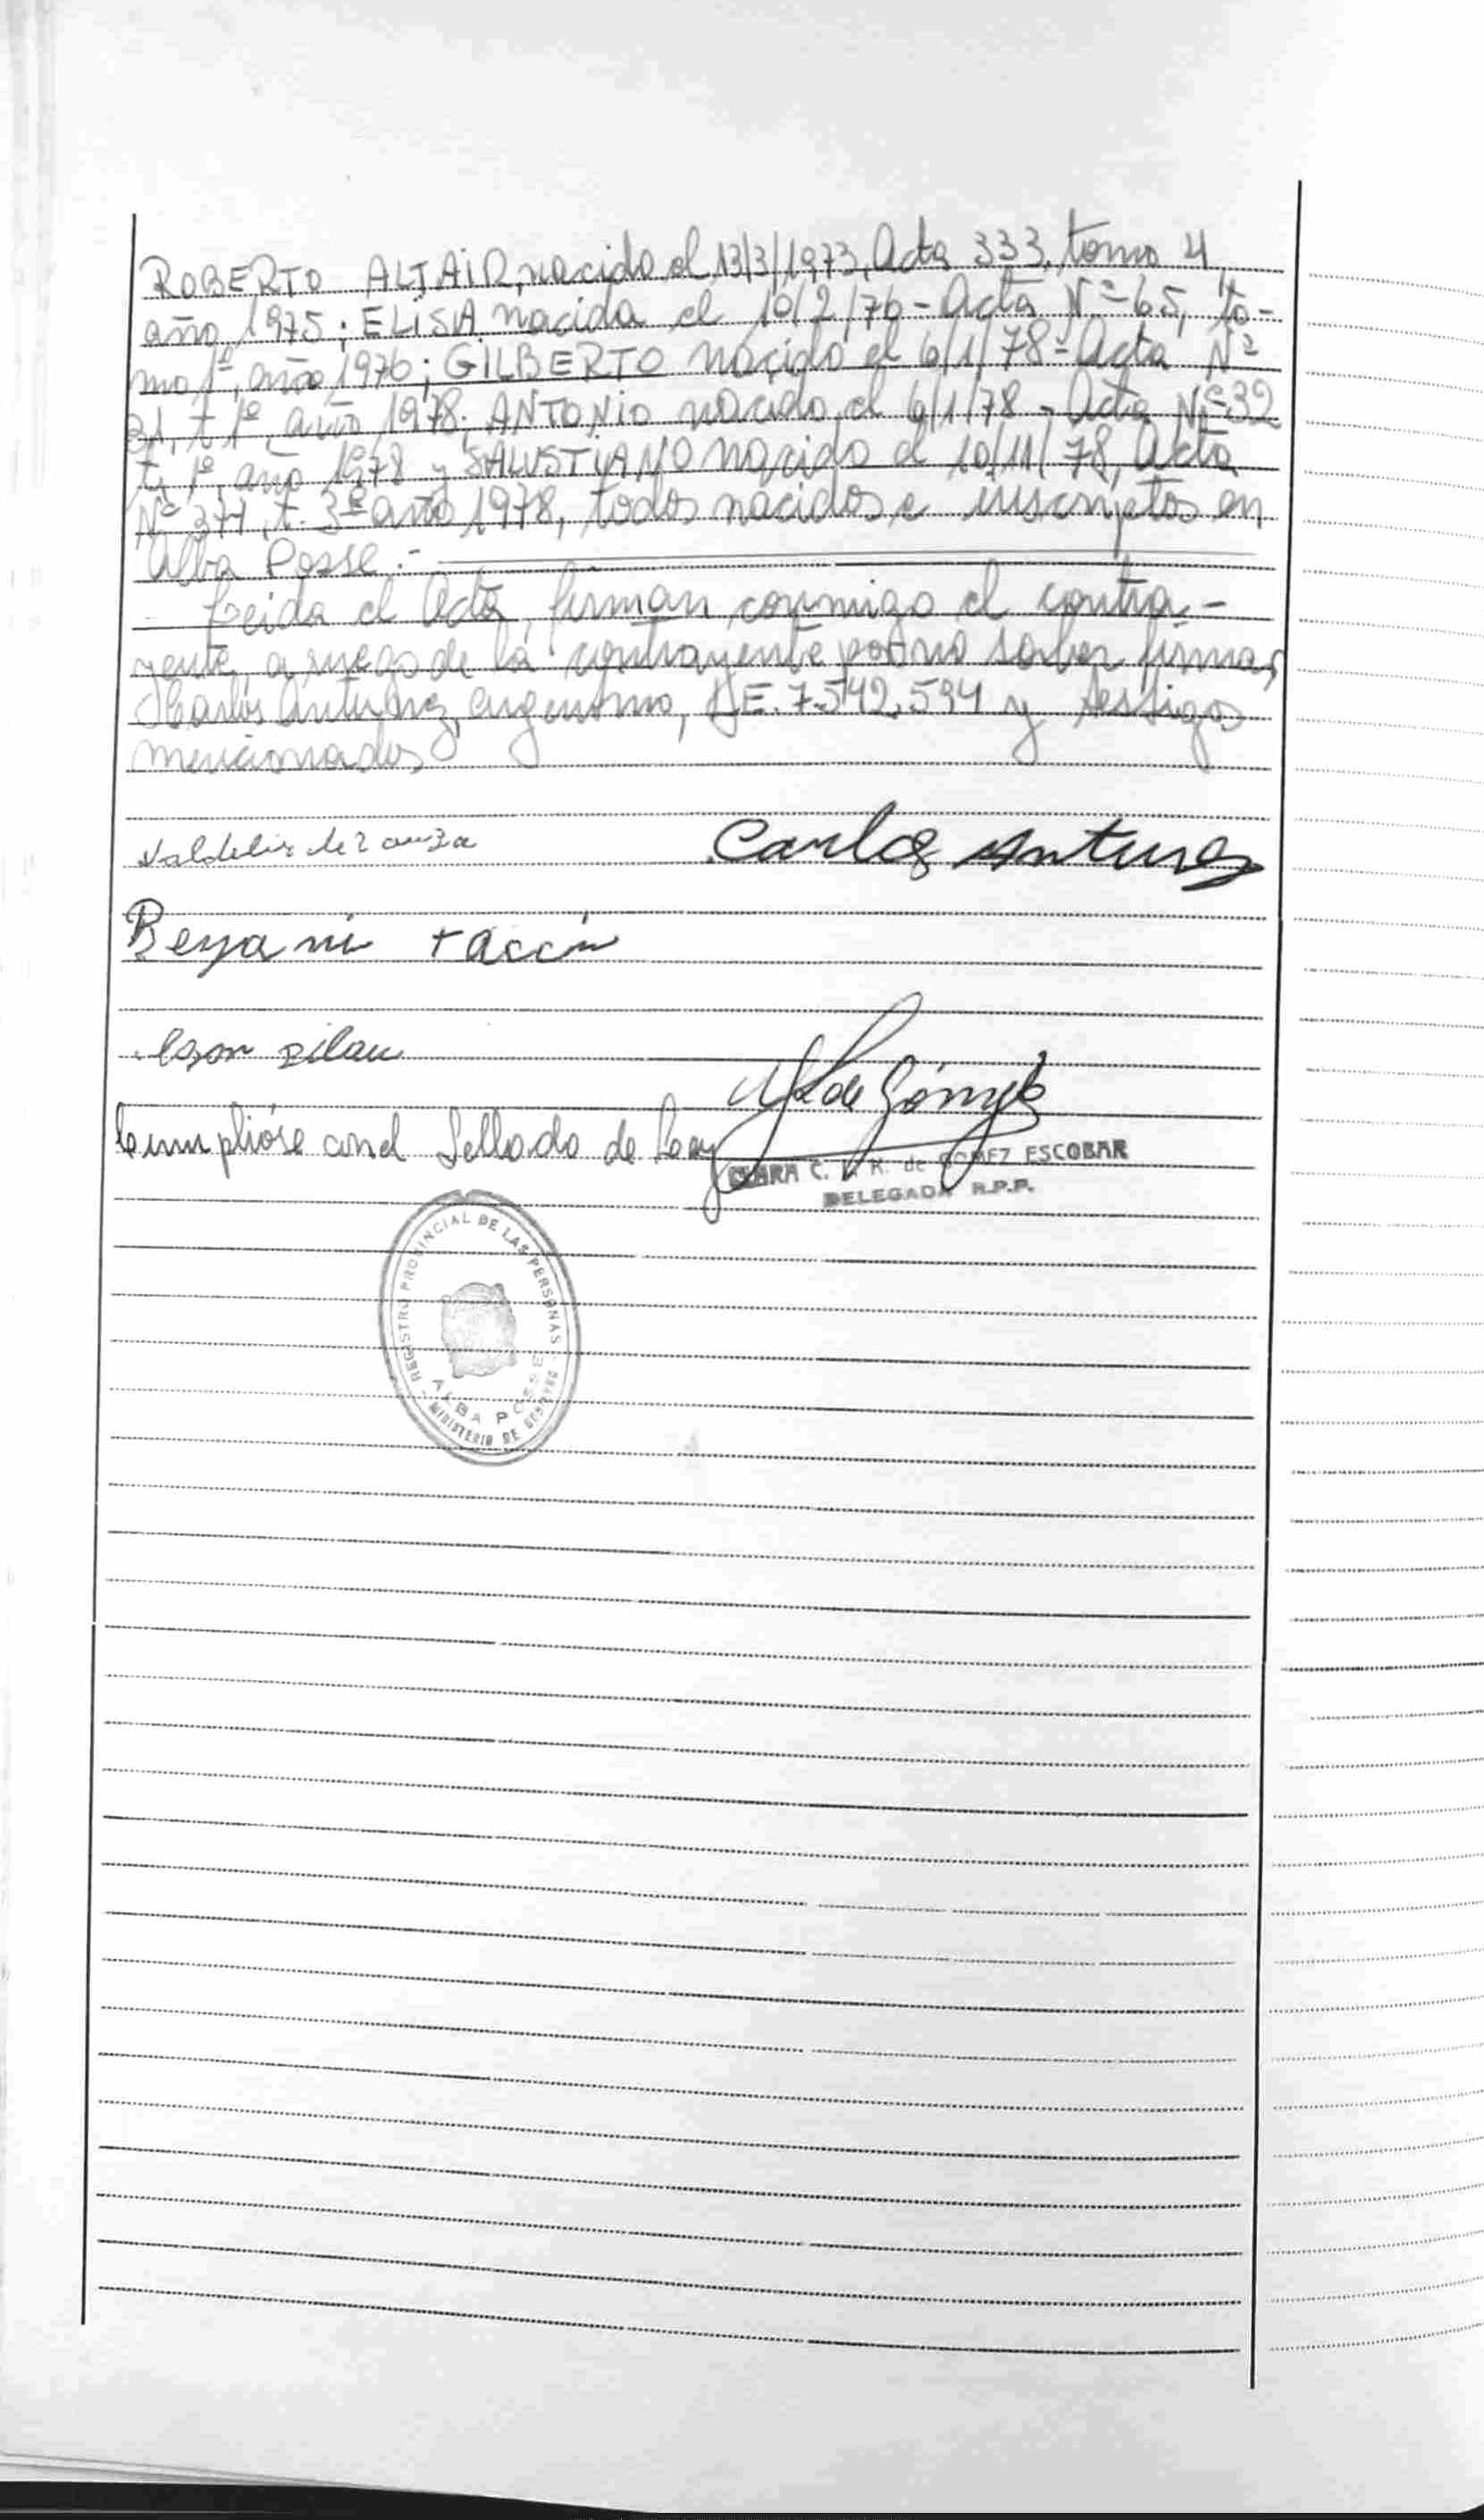 ROBERTO ALTAIR, nacido el 13/3/1973, Acta 333, tomo 4
año 1975; ELISA nacida el 10/2/76 - Acta Nº 65, to-
mo 1º, año 1976; GILBERTO nacido el 6/1/78 - Acta Nº
31, t. 1º, año 1978; ANTONIO nacido el 6/1/78 - Acta Nº 32
t. 1º, año 1978 y SALUSTIANO nacido el 10/11/78, Acta
Nº 371, t. 3º año 1978, todos nacidos e inscriptos en
Alba Posse.-
Leida el Acta, firman conmigo el contra-
yente, a ruego de la contrayente por no saber firmar
Carlos Antunez, argentino, L.E. 7.542.594 y testigos
mencionados
Carlos Antunes
Benjamin
Cumplióse con el Sellado de Ley
de Gómez
CLARA C. R. de GOMEZ ESCOBAR
DELEGADA R.P.P.
REGISTRO PROVINCIAL DE LAS PERSONAS
ALBA POSSE
MINISTERIO DE GOBIERNO